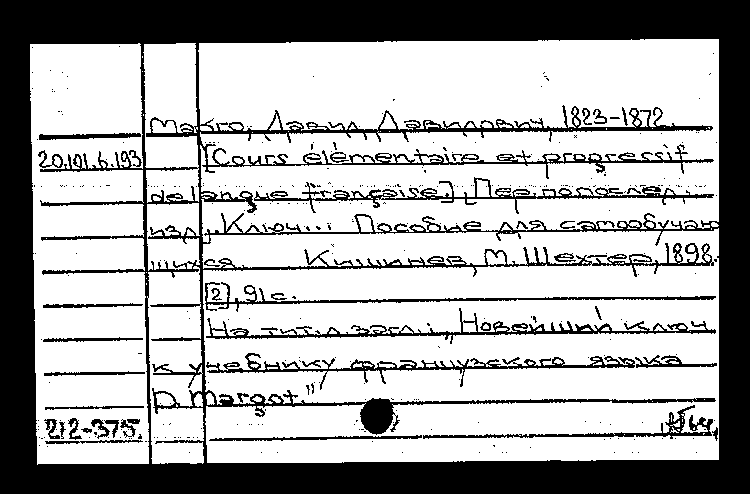 Макго, Давид Давидович, 1823-1872.
20.101.6.193 [Cours élémentaire et progressif
de langue française.] [Пер. по послед.
изд.] „Ключ... Пособие для самообучаю
щихся. Кишинев, М. Шехтер, 1898.
[2], 91 с.
На тит. л. загл.: „Новейший ключ
к учебнику французского языка
D. Margot."
212-375.